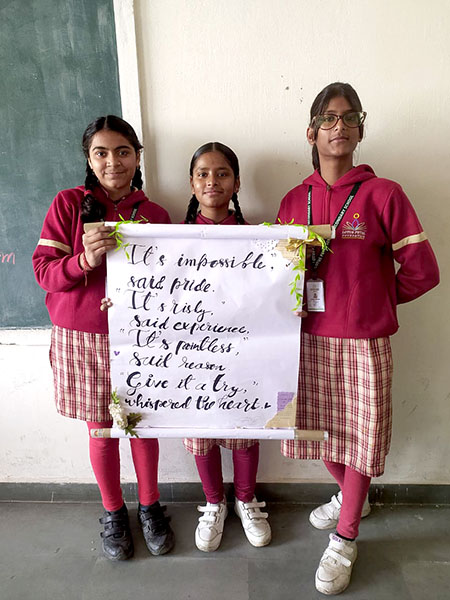 "It's impossible,"
said pride.
"It's risky,
said experience.
"It's pointless,"
said reason
Give it a try,"
whispered the heart.